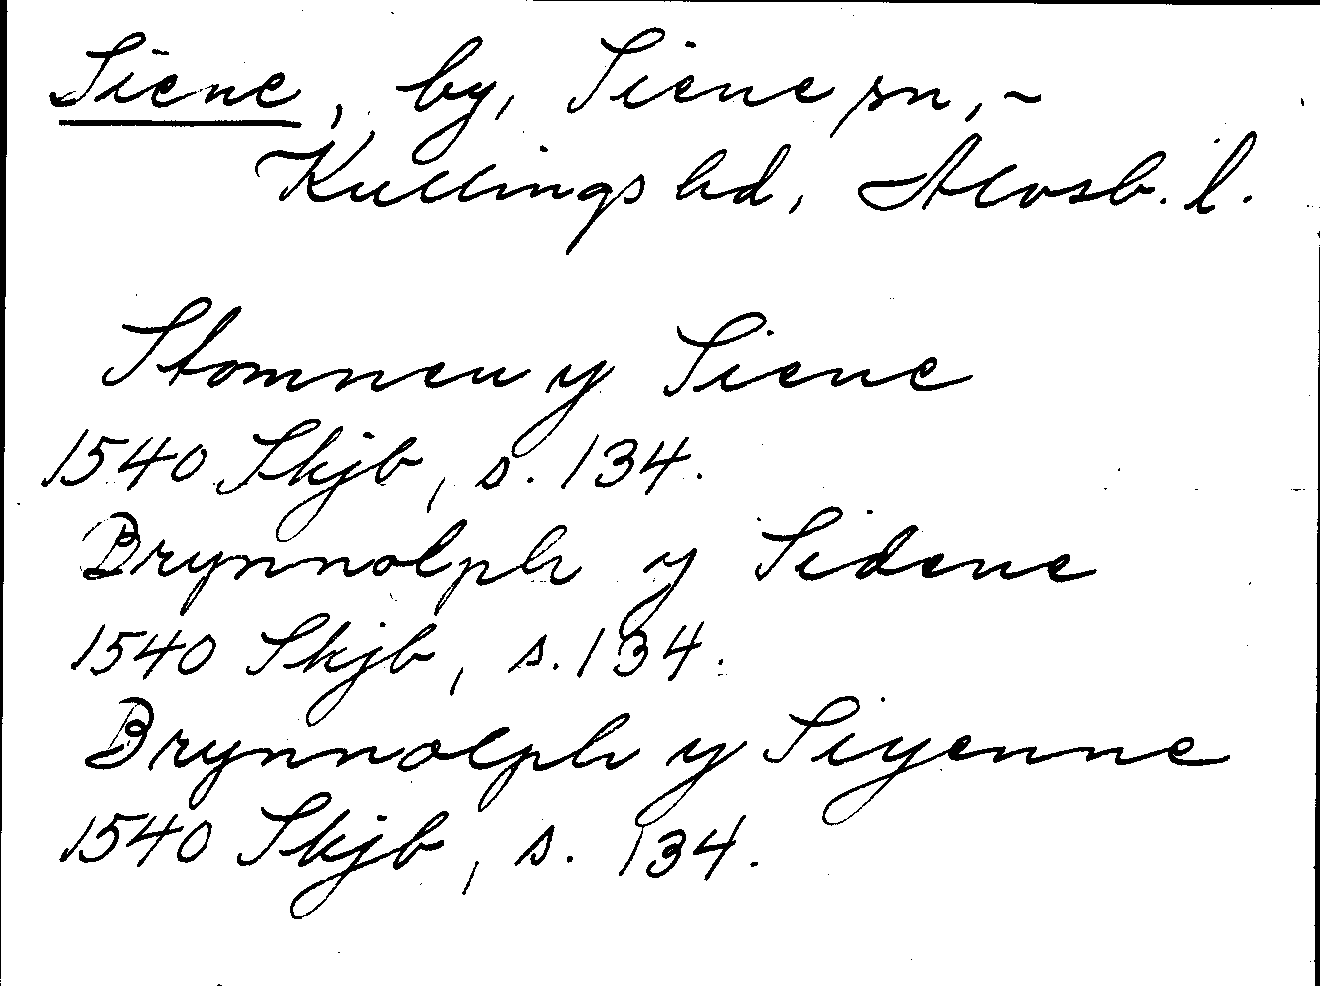 Siene, by, Siene sn, -
Kullings hd, Älvsb. l.
Stomnen y Siene
1540 Skjb, s. 134.
Brynnolph y Sidene
1540 Skjb, s. 134.
Brynnolph y Siyenne
1540 Skjb, s. 134.